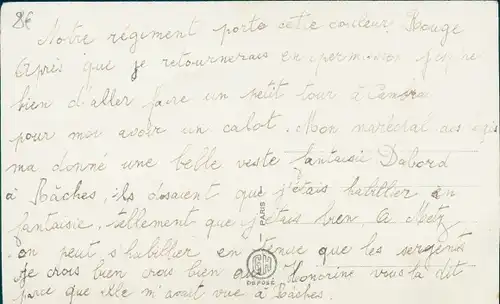 8€
Notre régiment porte cette couleur Rouge
Après que je retournerais en permission j'espère
bien d'aller faire un petit tour à
pour moi avoir un calot. Mon maréchal des logis
ma donné une belle veste fantaisie Dabord
à Râches, ils disaient que j'étais habiller en
fantaisie, tellement que j'étais bien. A Metz
on peut s'habiller en tenue que les sergents
Je crois bien crois bien que Honorine vous la dit
parce que elle m'avait vue à Râches.
PARIS
DÉPOSÉ